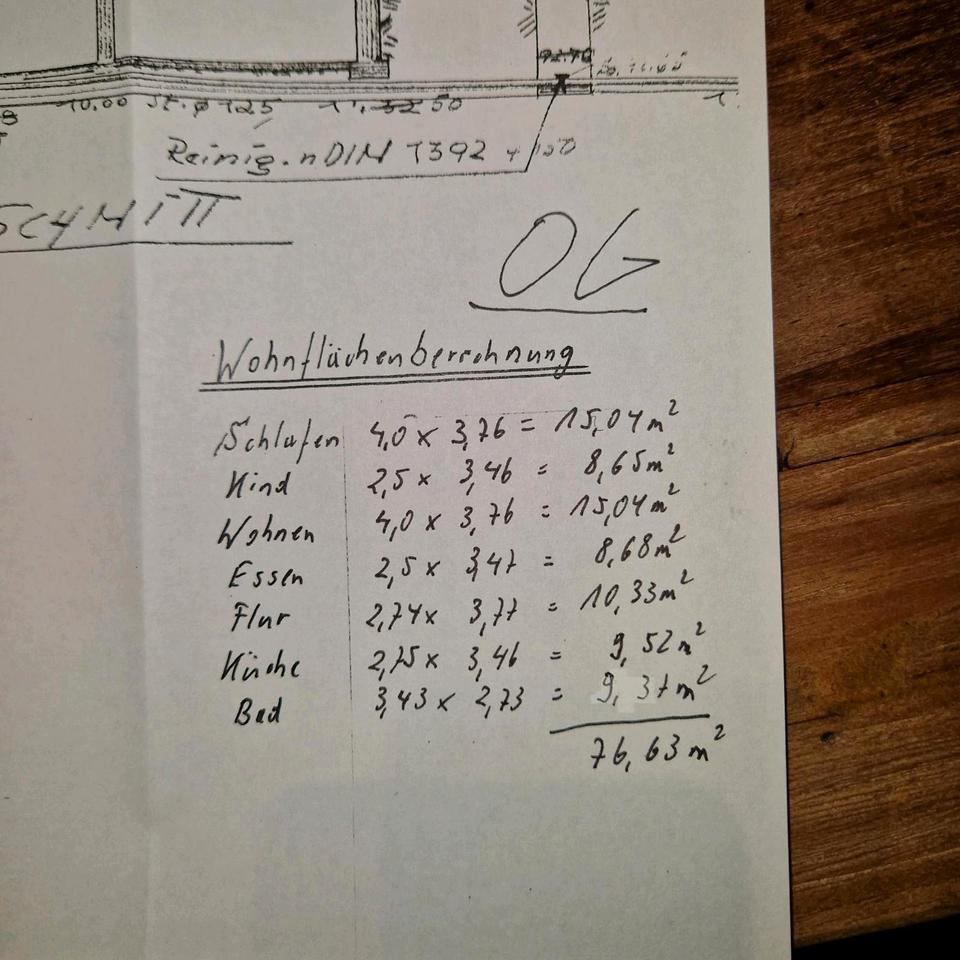 10.00 St. ø 125
Reinig. n DIN 1392
SCHNITT
OG
Wohnflächenberechnung
Schlafen 4,0 x 3,76 = 15,04 m²
Kind 2,5 x 3,46 = 8,65 m²
Wohnen 4,0 x 3,76 = 15,04 m²
Essen 2,5 x 3,47 = 8,68 m²
Flur 2,74 x 3,77 = 10,33 m²
Küche 2,75 x 3,46 = 9,52 m²
Bad 3,43 x 2,73 = 9,37 m²
76,63 m²